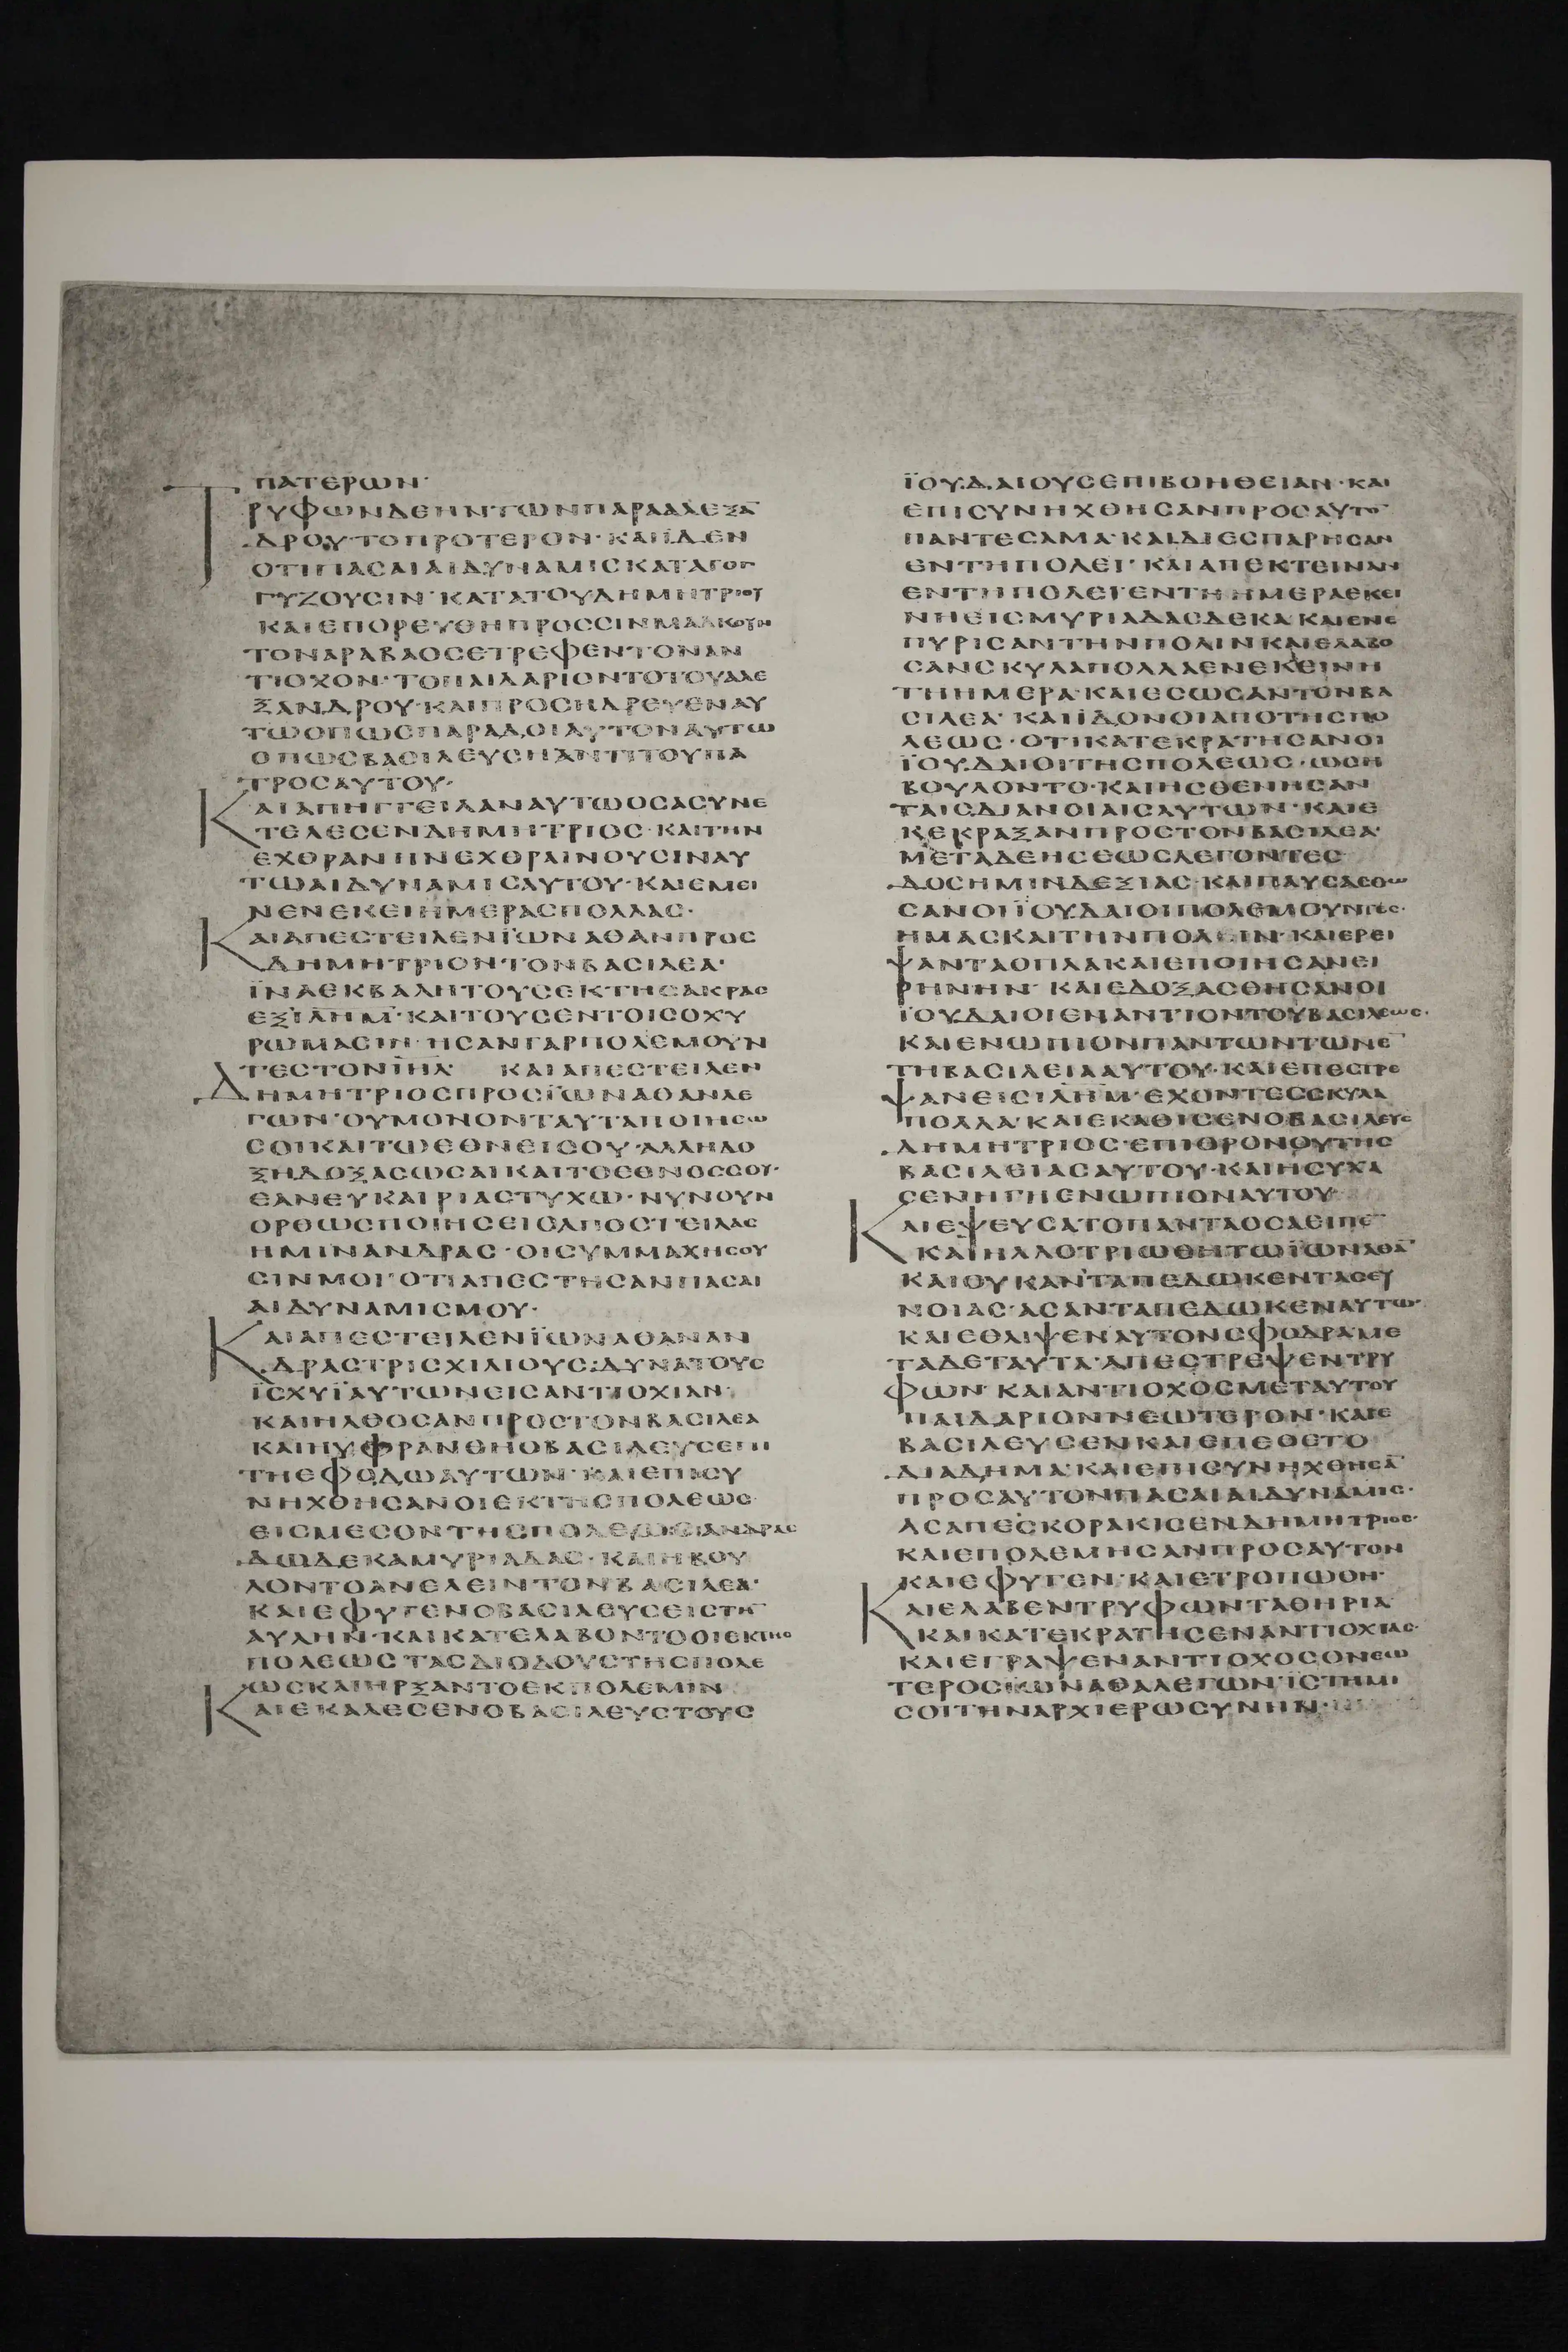 ΠΑΤΕΡΩΝ·
ΤΡΥΦΩΝΔΕΗΝΤΩΝΠΑΡΑΑΛΕΞΑ̅
ΔΡΟΥ·ΤΟΠΡΟΤΕΡΟΝ·ΚΑΙΪΔΕΝ
ΟΤΙΠΑΣΑΙΑΙΔΥΝΑΜΙΣΚΑΤΑΓΟΓ
ΓΥΖΟΥΣΙΝ·ΚΑΤΑΤΟΥΔΗΜΗΤΡΙΟΥ
ΚΑΙΕΠΟΡΕΥΘΗΠΡΟΣΣΙΝΜΑΛΚΟΥΗ
ΤΟΝΑΡΑΒΑΟΣΕΤΡΕΦΕΝΤΟΝΑΝ
ΤΙΟΧΟΝ·ΤΟΠΑΙΔΑΡΙΟΝΤΟΤΟΥΑΛΕ
ΞΑΝΔΡΟΥ·ΚΑΙΠΡΟΣΗΔΡΕΥΕΝΑΥ
ΤΩΟΠΩΣΠΑΡΑΔΟΙΑΥΤΟΝΑΥΤΩ
ΟΠΩΣΒΑΣΙΛΕΥΣΗΑΝΤΙΤΟΥΠΑ
ΤΡΟΣΑΥΤΟΥ·
ΚΑΙΑΠΗΓΓΕΙΛΑΝΑΥΤΩΟΣΑΣΥΝΕ
ΤΕΛΕΣΕΝΔΗΜΗΤΡΙΟΣ·ΚΑΙΤΗΝ
ΕΧΘΡΑΝΗΝΕΧΘΡΑΙΝΟΥΣΙΝΑΥ
ΤΩΑΙΔΥΝΑΜΙΣΑΥΤΟΥ·ΚΑΙΕΜΕΙ
ΝΕΝΕΚΕΙΗΜΕΡΑΣΠΟΛΛΑΣ·
ΚΑΙΑΠΕΣΤΕΙΛΕΝΪΩΝΑΘΑΝΠΡΟΣ
ΔΗΜΗΤΡΙΟΝΤΟΝΒΑΣΙΛΕΑ·
ΪΝΑΕΚΒΑΛΗΤΟΥΣΕΚΤΗΣΑΚΡΑΣ
ΕΞΙ̅Λ̅Η̅Μ̅·ΚΑΙΤΟΥΣΕΝΤΟΙΣΟΧΥ
ΡΩΜΑΣΙΝ·ΗΣΑΝΓΑΡΠΟΛΕΜΟΥΝ
ΤΕΣΤΟΝΙ̅Η̅Λ̅ ΚΑΙΑΠΕΣΤΕΙΛΕΝ
ΔΗΜΗΤΡΙΟΣΠΡΟΣΪΩΝΑΘΑΝΛΕ
ΓΩΝ·ΟΥΜΟΝΟΝΤΑΥΤΑΠΟΙΗΣΩ
ΣΟΙΚΑΙΤΩΕΘΝΕΙΣΟΥ·ΑΛΛΗΔΟ
ΞΗΔΟΞΑΣΩΣΑΙΚΑΙΤΟΕΘΝΟΣΣΟΥ·
ΕΑΝΕΥΚΑΙΡΙΑΣΤΥΧΩ·ΝΥΝΟΥΝ
ΟΡΘΩΣΠΟΙΗΣΕΙΣΑΠΟΣΤΕΙΛΑΣ
ΗΜΙΝΑΝΔΡΑΣ·ΟΙΣΥΜΜΑΧΗΣΟΥ
ΣΙΝΜΟΙ·ΟΤΙΑΠΕΣΤΗΣΑΝΠΑΣΑΙ
ΑΙΔΥΝΑΜΙΣΜΟΥ·
ΚΑΙΑΠΕΣΤΕΙΛΕΝΪΩΝΑΘΑΝΑΝ
ΔΡΑΣΤΡΙΣΧΙΛΙΟΥΣΔΥΝΑΤΟΥΣ
ΪΣΧΥΪΑΥΤΩΝΕΙΣΑΝΤΙΟΧΙΑΝ·
ΚΑΙΗΛΘΟΣΑΝΠΡΟΣΤΟΝΒΑΣΙΛΕΑ
ΚΑΙΗΥΦΡΑΝΘΗΟΒΑΣΙΛΕΥΣΕΠΙ
ΤΗΕΦΟΔΩΑΥΤΩΝ·ΚΑΙΕΠΙΣΥ
ΝΗΧΘΗΣΑΝΟΙΕΚΤΗΣΠΟΛΕΩΣ
ΕΙΣΜΕΣΟΝΤΗΣΠΟΛΕΩΣΑΝΔΡΑΣ
ΔΩΔΕΚΑΜΥΡΙΑΔΑΣ·ΚΑΙΗΒΟΥ
ΛΟΝΤΟΑΝΕΛΕΙΝΤΟΝΒΑΣΙΛΕΑ·
ΚΑΙΕΦΥΓΕΝΟΒΑΣΙΛΕΥΣΕΙΣΤΗ̅
ΑΥΛΗΝ·ΚΑΙΚΑΤΕΛΑΒΟΝΤΟΟΙΕΚΤΗΣ
ΠΟΛΕΩΣΤΑΣΔΙΟΔΟΥΣΤΗΣΠΟΛΕ
ΩΣΚΑΙΗΡΞΑΝΤΟΕΚΠΟΛΕΜΙΝ
ΚΑΙΕΚΑΛΕΣΕΝΟΒΑΣΙΛΕΥΣΤΟΥΣ
ΪΟΥΔΑΙΟΥΣΕΠΙΒΟΗΘΕΙΑΝ·ΚΑΙ
ΕΠΙΣΥΝΗΧΘΗΣΑΝΠΡΟΣΑΥΤΟ̅
ΠΑΝΤΕΣΑΜΑ·ΚΑΙΔΙΕΣΠΑΡΗΣΑΝ
ΕΝΤΗΠΟΛΕΙ·ΚΑΙΑΠΕΚΤΕΙΝΑΝ
ΕΝΤΗΠΟΛΕΙ·ΕΝΤΗΗΜΕΡΑΕΚΕΙ
ΝΗΕΙΣΜΥΡΙΑΔΑΣΔΕΚΑΚΑΙΕΝΕ
ΠΥΡΙΣΑΝΤΗΝΠΟΛΙΝΚΑΙΕΛΑΒΟ
ΣΑΝΣΚΥΛΑΠΟΛΛΑΕΝΕΚΕΙΝΗ
ΤΗΗΜΕΡΑ·ΚΑΙΕΣΩΣΑΝΤΟΝΒΑ
ΣΙΛΕΑ·ΚΑΙΪΔΟΝΟΙΑΠΟΤΗΣΠΟ
ΛΕΩΣ·ΟΤΙΚΑΤΕΚΡΑΤΗΣΑΝΟΙ
ΪΟΥΔΑΙΟΙΤΗΣΠΟΛΕΩΣ·ΩΣΗ
ΒΟΥΛΟΝΤΟ·ΚΑΙΗΣΘΕΝΗΣΑΝ
ΤΑΙΣΔΙΑΝΟΙΑΙΣΑΥΤΩΝ·ΚΑΙΕ
ΚΕΚΡΑΞΑΝΠΡΟΣΤΟΝΒΑΣΙΛΕΑ·
ΜΕΤΑΔΕΗΣΕΩΣΛΕΓΟΝΤΕΣ
ΔΟΣΗΜΙΝΔΕΞΙΑΣ·ΚΑΙΠΑΥΣΑΣΘΩ
ΣΑΝΟΙΪΟΥΔΑΙΟΙΠΟΛΕΜΟΥΝΤΕΣ·
ΗΜΑΣΚΑΙΤΗΝΠΟΛΙΝ·ΚΑΙΕΡΕΙ
ΨΑΝΤΑΟΠΛΑΚΑΙΕΠΟΙΗΣΑΝΕΙ
ΡΗΝΗΝ·ΚΑΙΕΔΟΞΑΣΘΗΣΑΝΟΙ
ΪΟΥΔΑΙΟΙΕΝΑΝΤΙΟΝΤΟΥΒΑΣΙΛΕΩΣ·
ΚΑΙΕΝΩΠΙΟΝΠΑΝΤΩΝΤΩΝΕ̅
ΤΗΒΑΣΙΛΕΙΑΑΥΤΟΥ·ΚΑΙΕΠΕΣΤΡΕ
ΨΑΝΕΙΣΙ̅Λ̅Η̅Μ̅·ΕΧΟΝΤΕΣΣΚΥΛΑ
ΠΟΛΛΑ·ΚΑΙΕΚΑΘΙΣΕΝΟΒΑΣΙΛΕΥΣ
ΔΗΜΗΤΡΙΟΣ·ΕΠΙΘΡΟΝΟΥΤΗΣ
ΒΑΣΙΛΕΙΑΣΑΥΤΟΥ·ΚΑΙΗΣΥΧΑ
ΣΕΝΗΓΗΕΝΩΠΙΟΝΑΥΤΟΥ
ΚΑΙΕΨΕΥΣΑΤΟΠΑΝΤΑΟΣΑΕΙΠΕ̅
ΚΑΙΗΛΛΟΤΡΙΩΘΗΤΩΪΩΝΑΘΑ̅
ΚΑΙΟΥΚΑΝΤΑΠΕΔΩΚΕΝΤΑΣΕΥ
ΝΟΙΑΣ·ΑΣΑΝΤΑΠΕΔΩΚΕΝΑΥΤΩ·
ΚΑΙΕΘΛΙΨΕΝΑΥΤΟΝΣΦΟΔΡΑΜΕ
ΤΑΔΕΤΑΥΤΑ·ΑΠΕΣΤΡΕΨΕΝΤΡΥ
ΦΩΝ·ΚΑΙΑΝΤΙΟΧΟΣΜΕΤΑΥΤΟΥ
ΠΑΙΔΑΡΙΟΝΝΕΩΤΕΡΟΝ·ΚΑΙΕ
ΒΑΣΙΛΕΥΣΕΝΚΑΙΕΠΕΘΕΤΟ
ΔΙΑΔΗΜΑ·ΚΑΙΕΠΙΣΥΝΗΧΘΗΣΑ̅
ΠΡΟΣΑΥΤΟΝΠΑΣΑΙΑΙΔΥΝΑΜΙΣ·
ΑΣΑΠΕΣΚΟΡΑΚΙΣΕΝΔΗΜΗΤΡΙΟΣ·
ΚΑΙΕΠΟΛΕΜΗΣΑΝΠΡΟΣΑΥΤΟΝ
ΚΑΙΕΦΥΓΕΝ·ΚΑΙΕΤΡΟΠΩΘΗ·
ΚΑΙΕΛΑΒΕΝΤΡΥΦΩΝΤΑΘΗΡΙΑ
ΚΑΙΚΑΤΕΚΡΑΤΗΣΕΝΑΝΤΙΟΧΙΑΣ·
ΚΑΙΕΓΡΑΨΕΝΑΝΤΙΟΧΟΣΟΝΕΩ
ΤΕΡΟΣΙΩΝΑΘΑΛΕΓΩΝ·ΪΣΤΗΜΙ
ΣΟΙΤΗΝΑΡΧΙΕΡΩΣΥΝΗΝ·